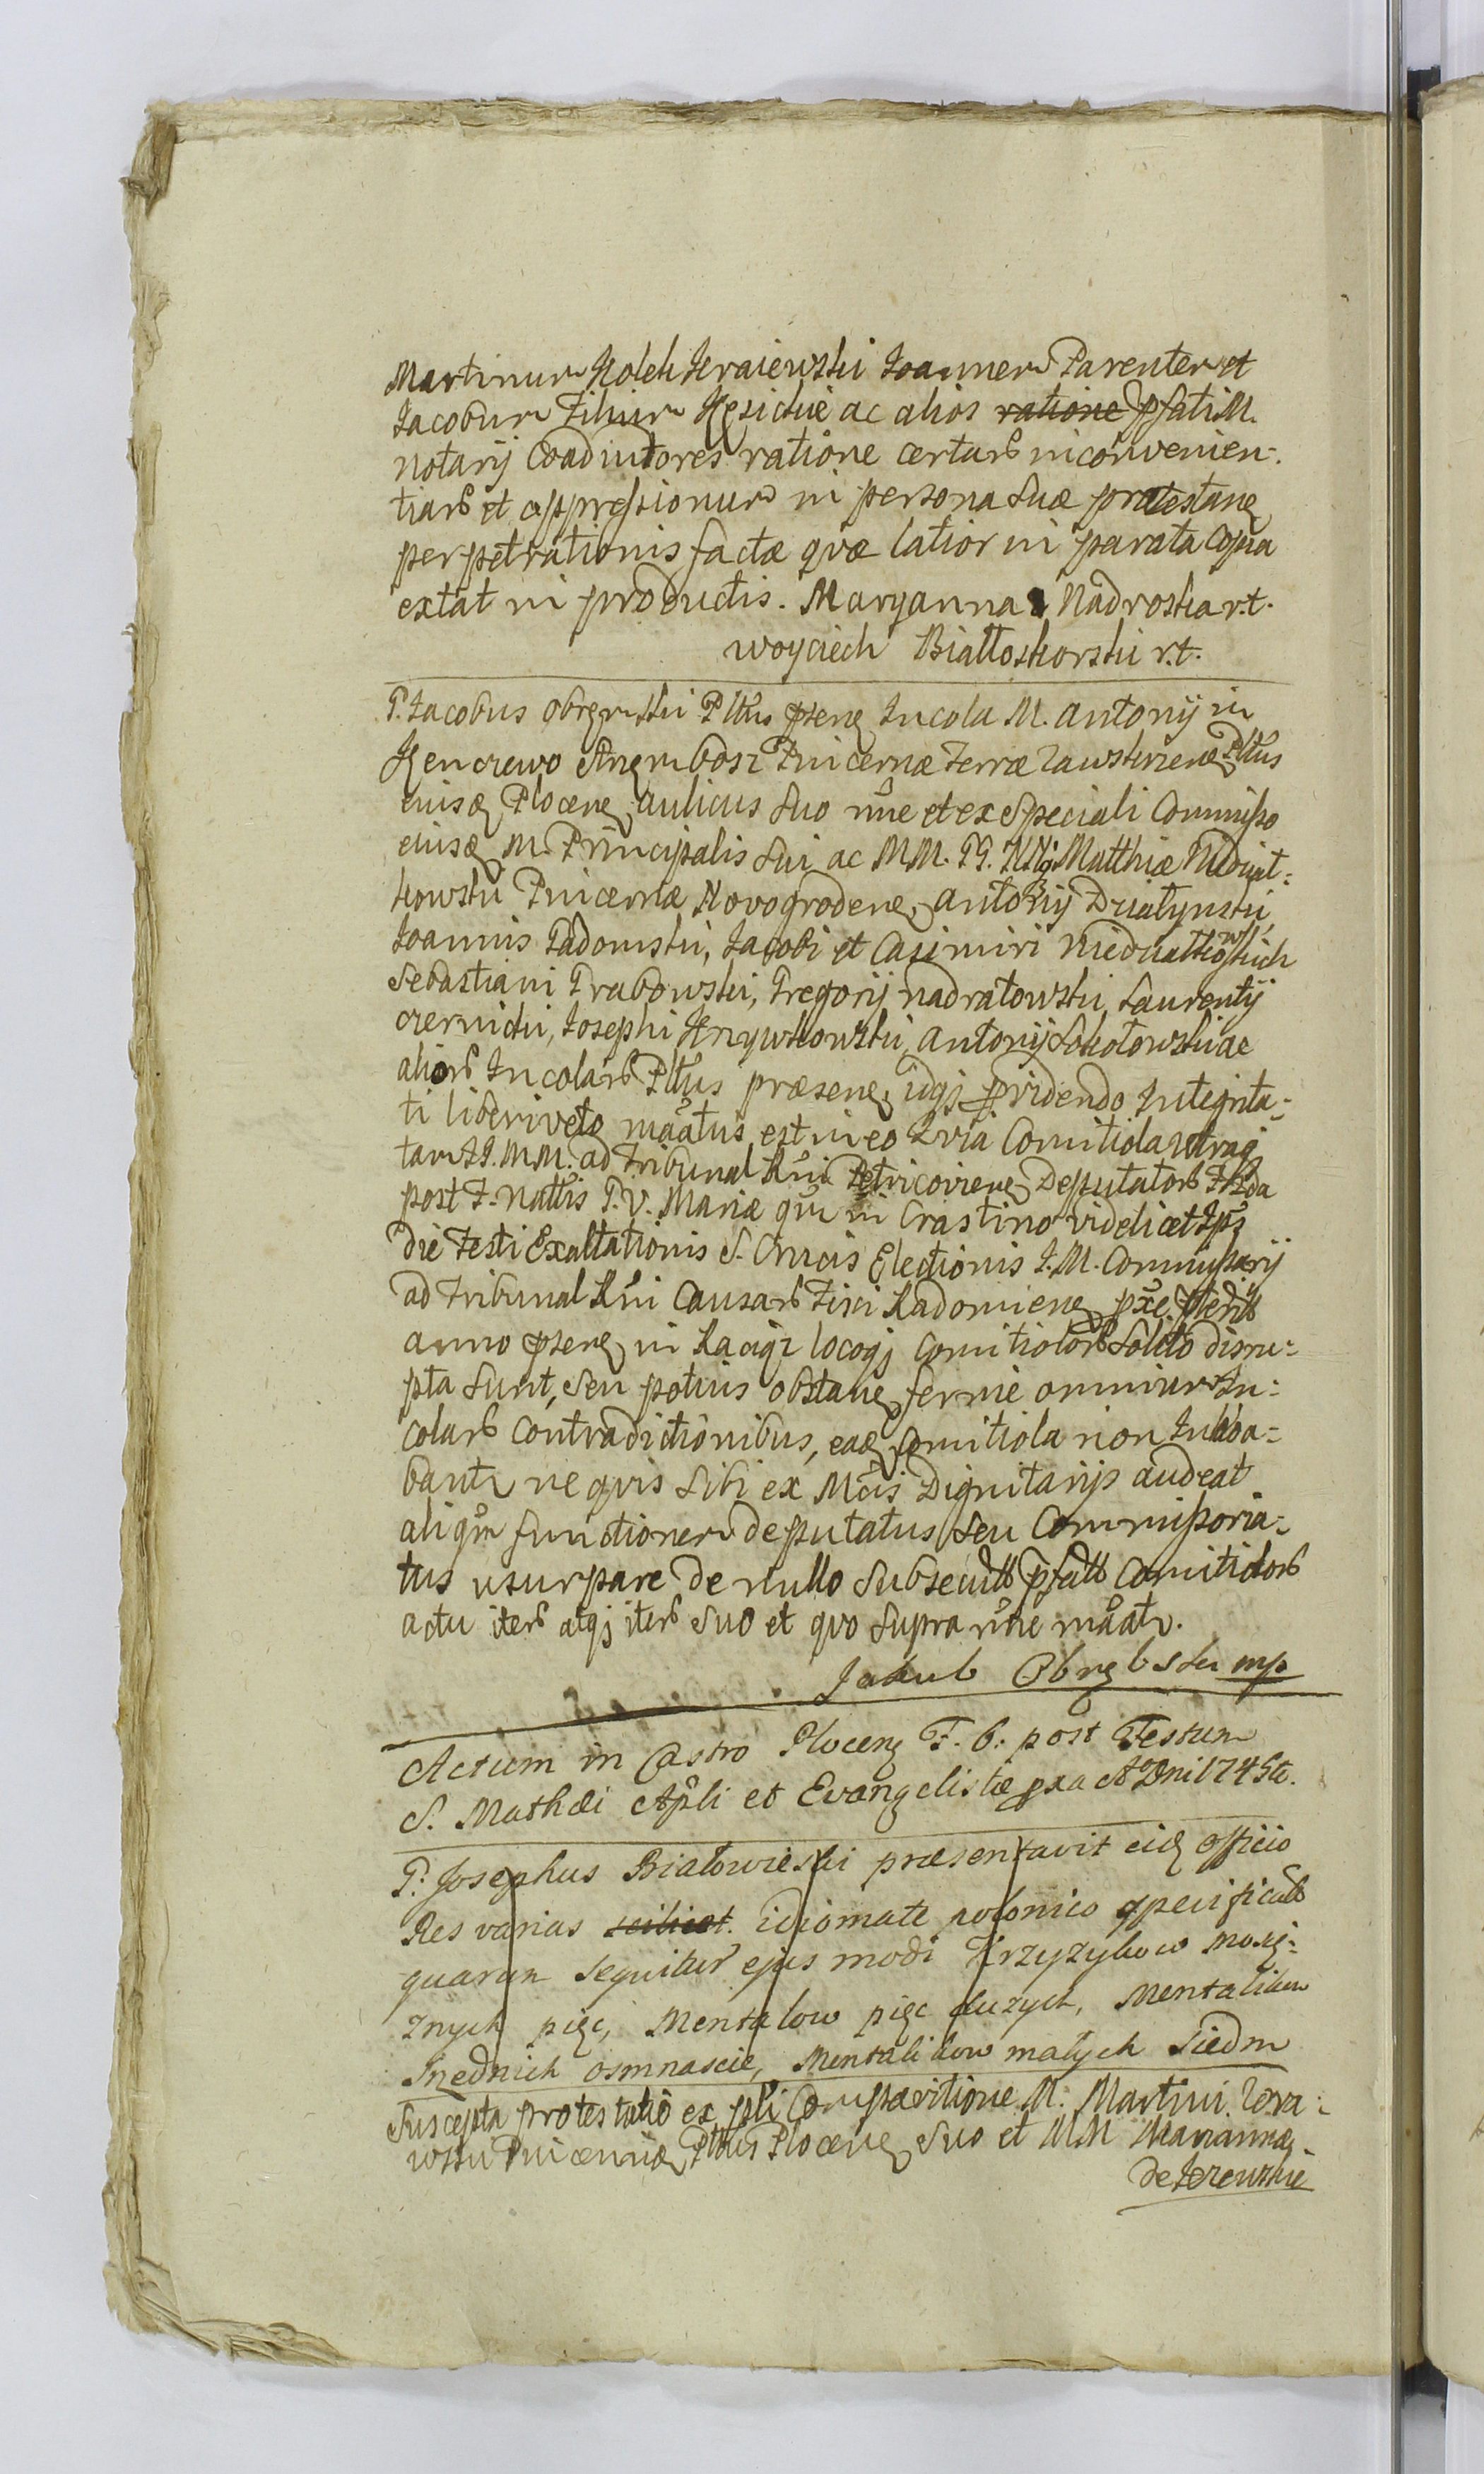 Martinum Holeh Kraiewski Joannem Parentem et
Jacobum Filium Kęsickie ac alios ratione pfati M.
notarij Coadiutores ratione certarb inconvenien-
tiarb et oppressionum in persona suæ protestanę
perpetrationis factæ qvæ latior in parata Copia
extat in productis. Maryanna Nadroska r.t.
woyciech Białłoskorski r.t.
P. Jacobus Obręmski Pltus psenę Incola M. Antonij in
Kenczewo Pincernæ Terræ Zawskrzenę Pltus
eiusdę Plocenę aulicus suo nne et ex speciali Commisso
eiusdę M. Principalis sui ac MM. GG. NNq Matthiæ
kowski Pincernæ Novogrodenę, Antonij Działynski,
Joannis Padomski, Jacobi et Casimiri Niedziałkowskich
Sebastiani Grabowski, Gregorij Nadratowski, Laurentij
czernicki, Josephi Krzywkowski, Antonij Sokołowski ac
aliorb Incolarb Pltus præsenę, idqj providendo Integrita-
ti liberi veto mãatus est in eo qvia Comitiola utraqj
tam JJ. MM. ad Tribunal Rni Petricoviene Deputatorb F 2da
post F. Nattis B.V. Mariæ qm in Crastino videlicet Ips
die Festi Exaltationis S. Crucis Electionis J.M. Commissarij
ad Tribunal Rni Causarb Fisci Radomienę pxe pteritb
anno psenę in Raciąz locoqj Comitiolorb solito disru-
pta sunt, seu potius obstanę ferme omnium In-
colarb Contradictionibus, eadę Comitiola non Inhoa-
bantr ne qvis sibi ex Mcis Dignitarijs audeat
aliqm functionem deputatus seu Commissoria-
tus usurpare de nullo subsecutb pfattb Comitiolorb
actu iterb atqj iterb suo et qvo supra nne mãatr.
Jakub Obrębski mp
Actum in Castro Plocenę F. 6. post Festum
S. Mathæi Apli et Evangelistæ pxa Ao Dni 1745to.
P. Josephus Białowieski præsentavit eidę officio
Res varias scilicet. idiomate polonico specificatb
quarum sequitur ejus modi Krzyzykow mosię-
znych pięc, Mentalow pięc duzych, Mentalikow
Srzednich osmnascie, Mentalikow małych Siedm
Suscepta protestatio ex pli Comparitione M. Martini Zora-
wski Pincernidę Pltus Plocenę suo et MM Mariannæ
de